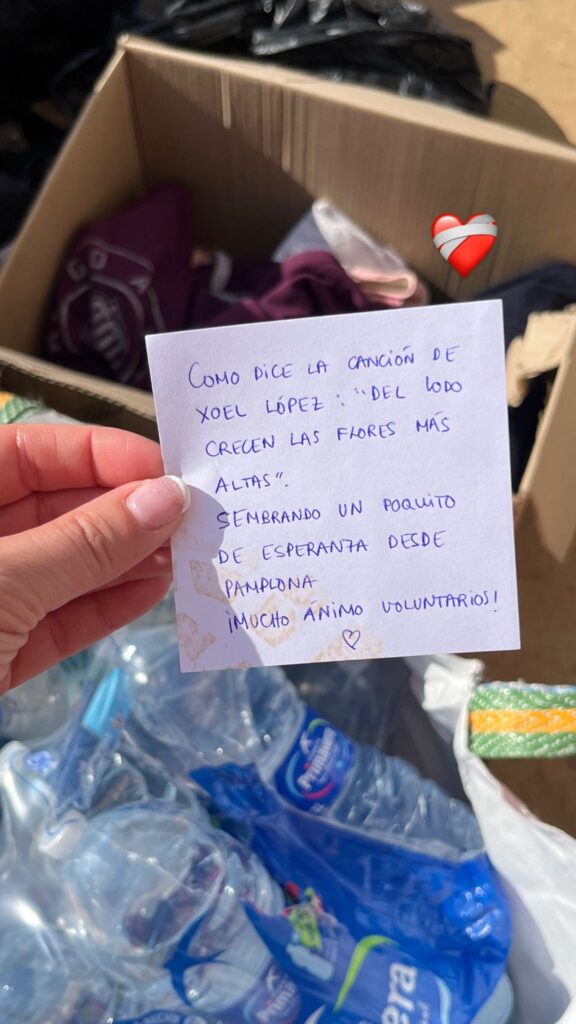 COMO DICE LA CANCIÓN DE
XOEL LÓPEZ: "DEL LODO
CRECEN LAS FLORES MÁS
ALTAS".
SEMBRANDO UN POQUITO
DE ESPERANZA DESDE
PAMPLONA
¡MUCHO ÁNIMO VOLUNTARIOS!